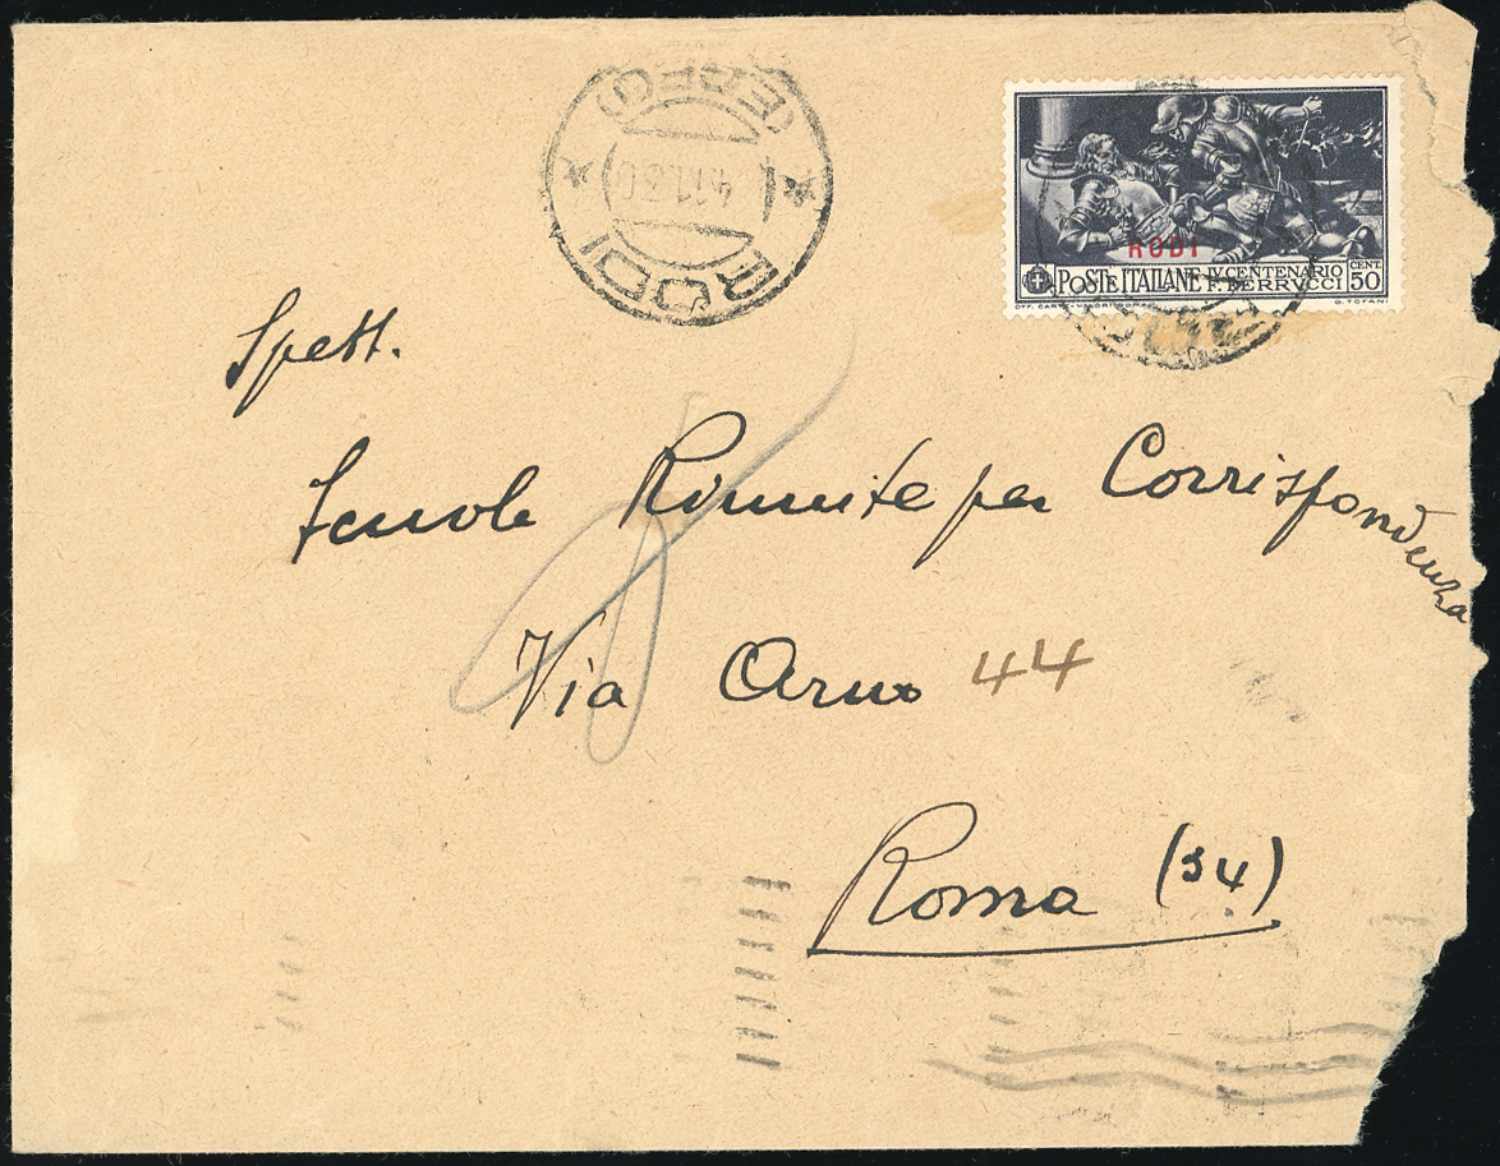 (EGEO)
4.11.30
RODI
RODI
POSTE ITALIANE IV. CENTENARIO F. FERRVCCI CENT. 50
G. TOFANI
Spett.
Scuole Riunite per Corrispondenza
Via Arno 44
Roma (34)